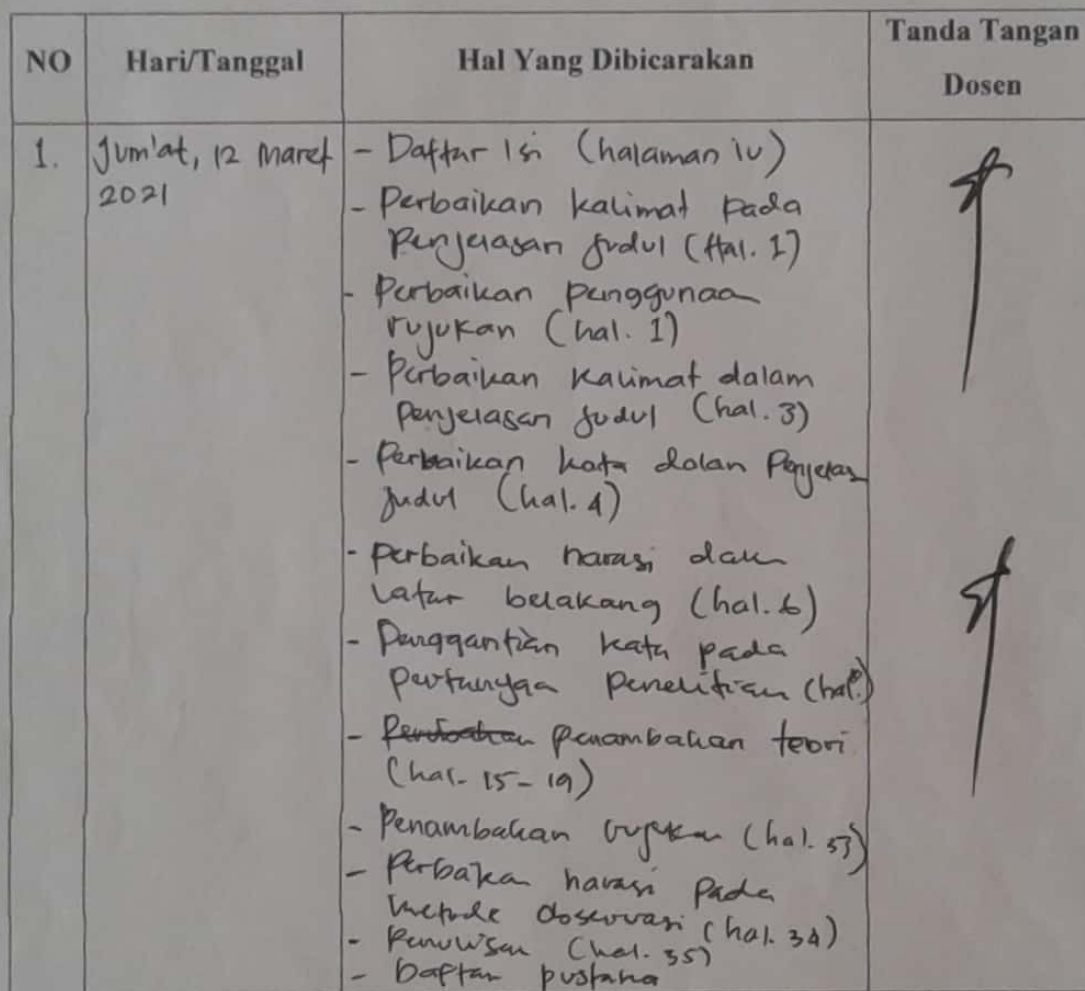 NO
Hari/Tanggal
Hal Yang Dibicarakan
Tanda Tangan
Dosen
1.
Jum'at, 12 Maret
2021
- Daftar Isi (halaman iv)
- Perbaikan kalimat pada
Penjelasan judul (Hal. 1)
- Perbaikan penggunaan
rujukan (hal. 1)
- Perbaikan kalimat dalam
penjelasan judul (hal. 3)
- Perbaikan kata dalam Penjelas
judul (hal. 4)
- perbaikan narasi
latar belakang (hal. 6)
- Penggantian kata pada
pertanyaan penelitian (hal.
- penambahan teori
(hal- 15-19)
- Penambahan rujukan (hal. 33)
- Perbaikan narasi pada
metode observasi (hal. 34)
- Penulisan (hal. 35)
- Daftar pustaka